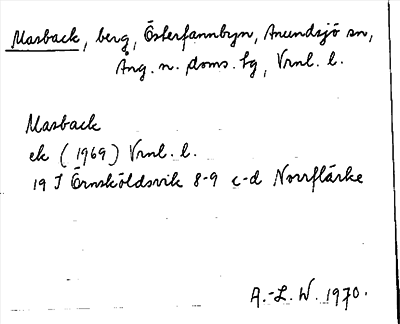 Masback, berg, Österfannbyn, Anundsjö sn,
Ång. n. doms. hg, Vrnl. l.
Masback
ek (1969) Vrnl. l.
19 J Örnsköldsvik 8-9 c-d Norrflärke
A.-L. W. 1970.